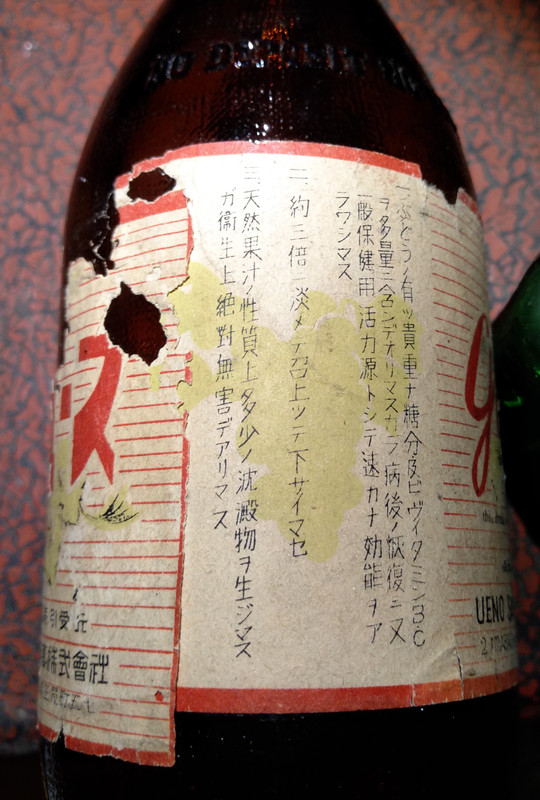 NO DEPOSIT
一、ぶどうノ有ツ貴重ナ糖分及ビヴィタミンBC
ヲ多量ニ含ンデオリマスカラ病後ノ恢復ニ又
一般保健用活力源トシテ速カナ効能ヲア
ラワシマス
二、約三倍ニ淡メテ召上ツテ下サイマセ
三、天然果汁ノ性質上多少ノ沈澱物ヲ生ジマス
ガ衞生上絶對無害デアリマス
ース
株式會社
UENO